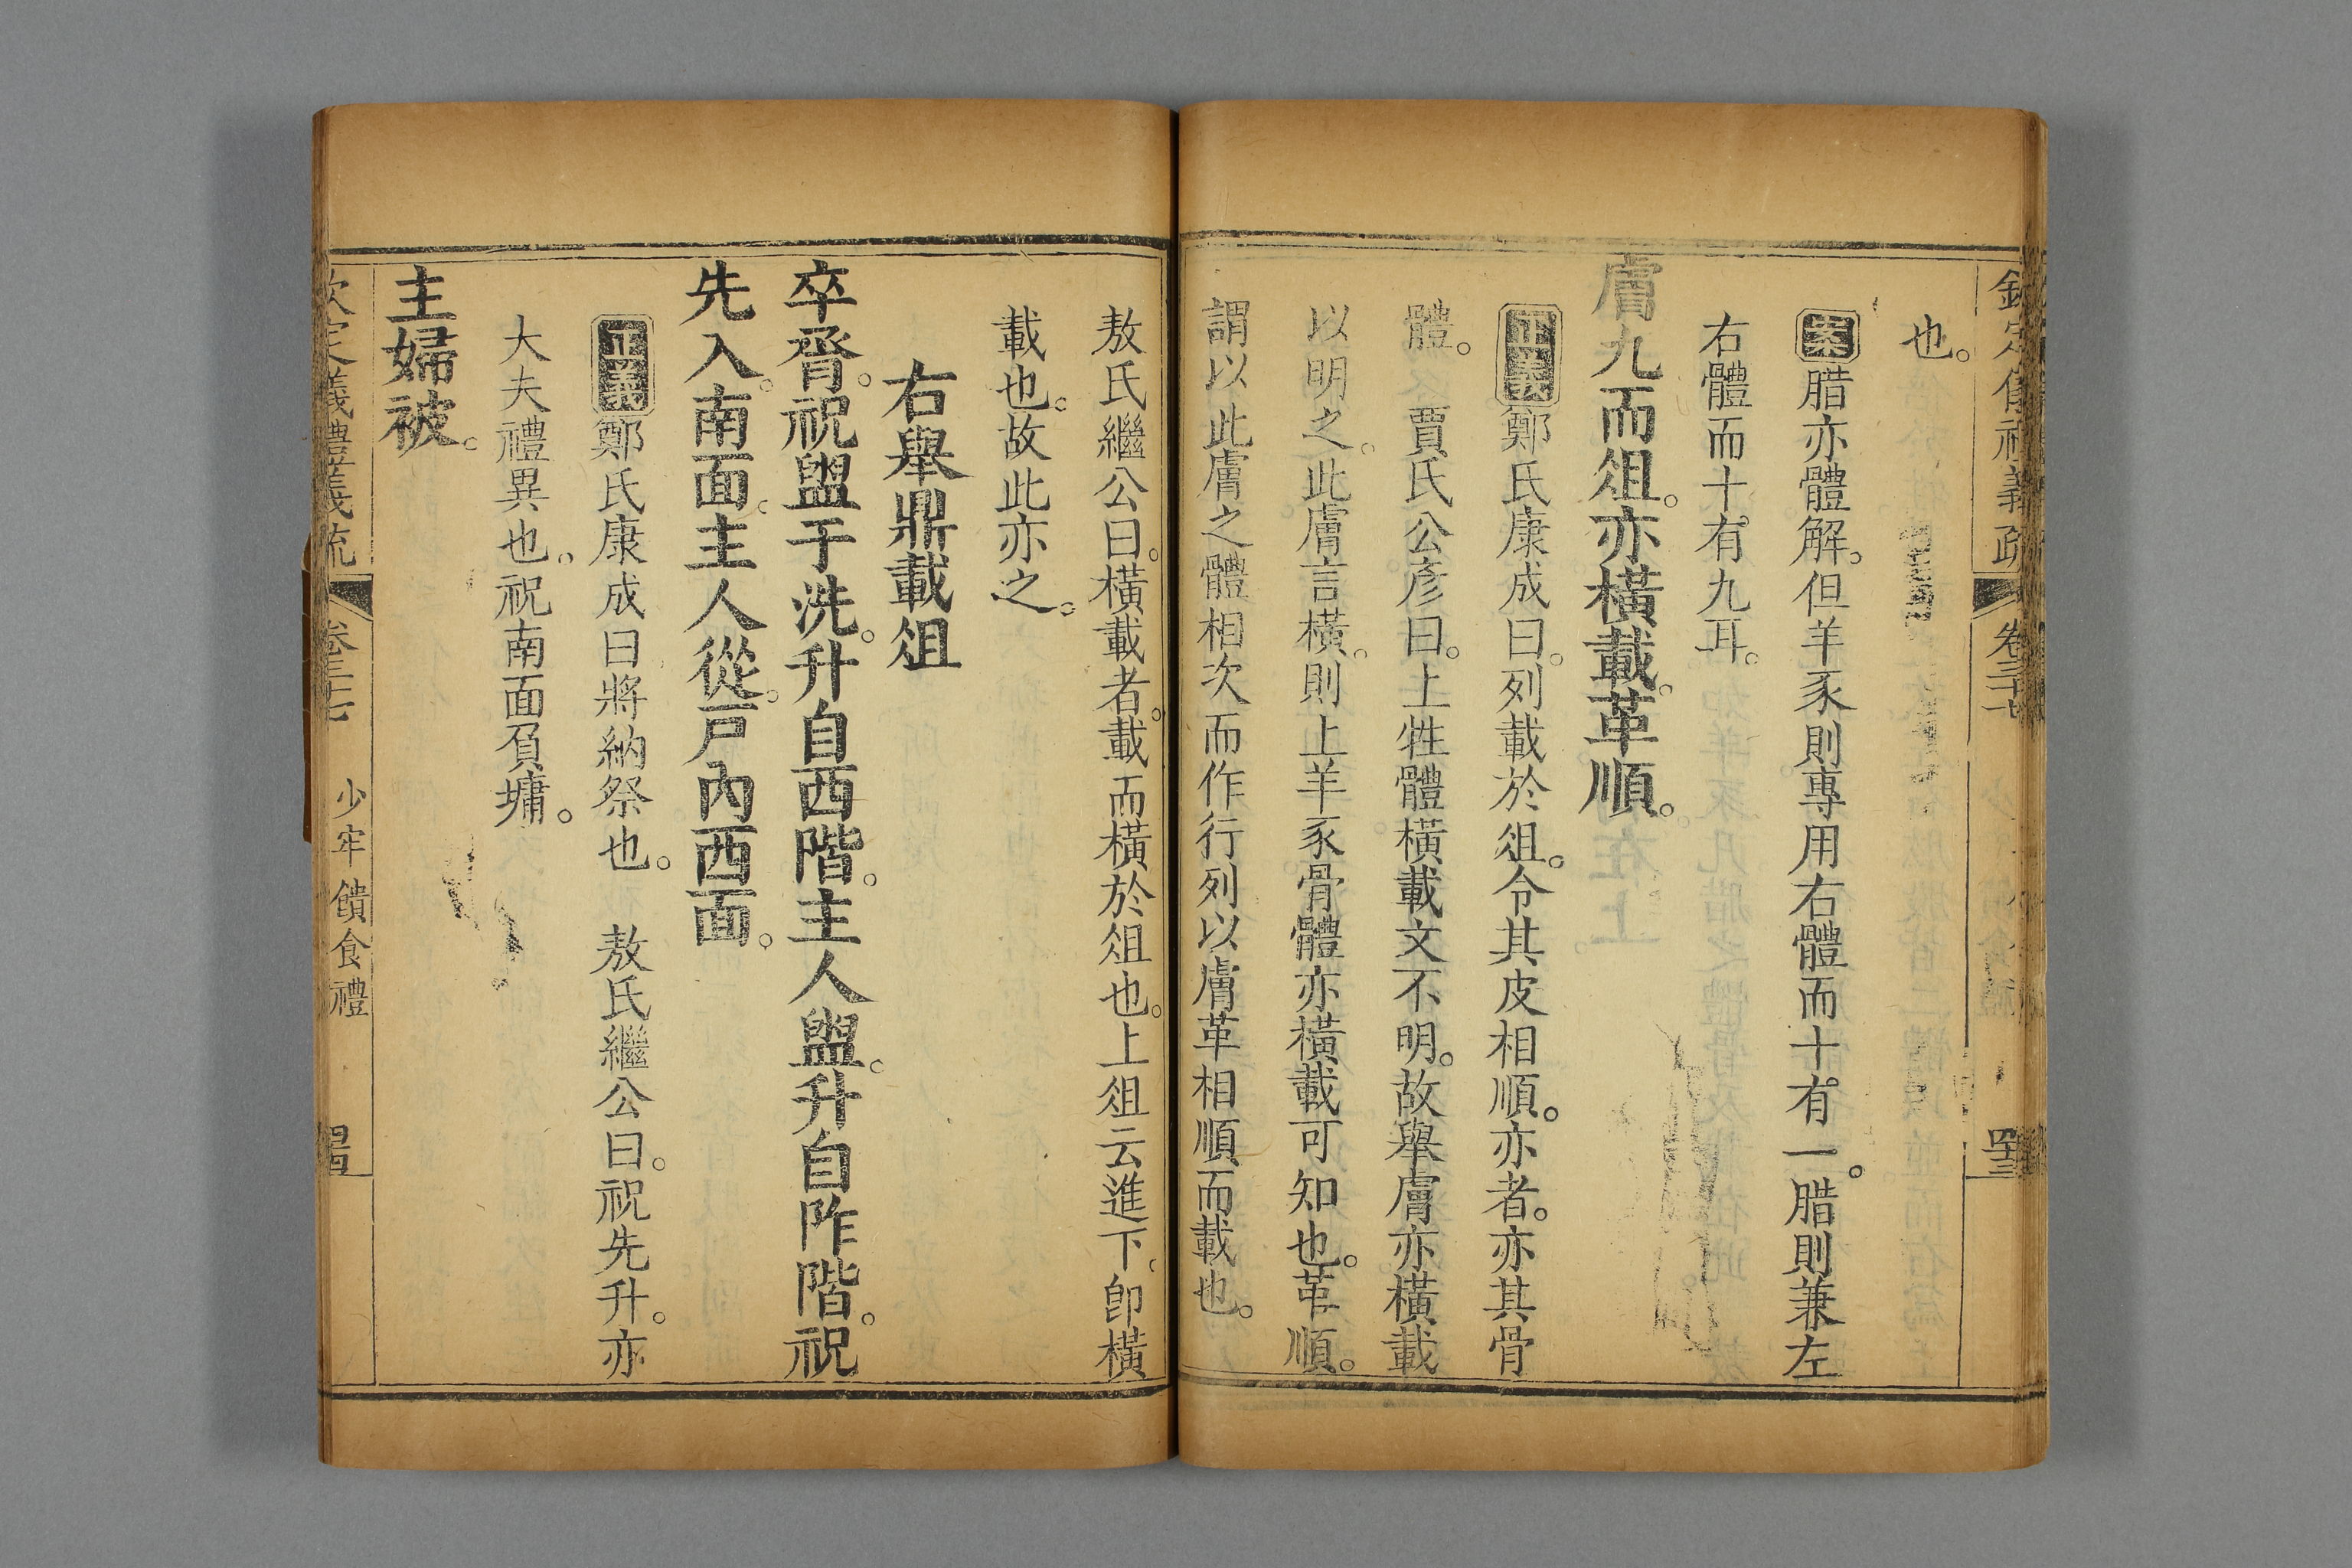 也。
案腊亦體解。但羊豕則專用右體而十有一。腊則兼左
右體而十有九耳。
膚九而俎。亦橫載。革順。
正義鄭氏康成曰。列載於俎。令其皮相順。亦者。亦其骨
體。 賈氏公彥曰。上牲體橫載文不明。故舉膚亦橫載
以明之。此膚言橫。則上羊豕骨體亦橫載可知也。革順。
謂以此膚之體相次而作行列以膚革相順而載也。
敖氏繼公曰。橫載者。載而橫於俎也。上俎云進下。卽橫
載也。故此亦之。
右舉鼎載俎
卒脀。祝盥于洗。升自西階。主人盥。升自阼階。祝
先入。南面。主人從。戶內西面。
正義鄭氏康成曰將納祭也。 敖氏繼公曰。祝先升。亦
大夫禮異也。祝南面負墉。
主婦被。
欽定儀禮義疏 卷三十七 少牢饋食禮